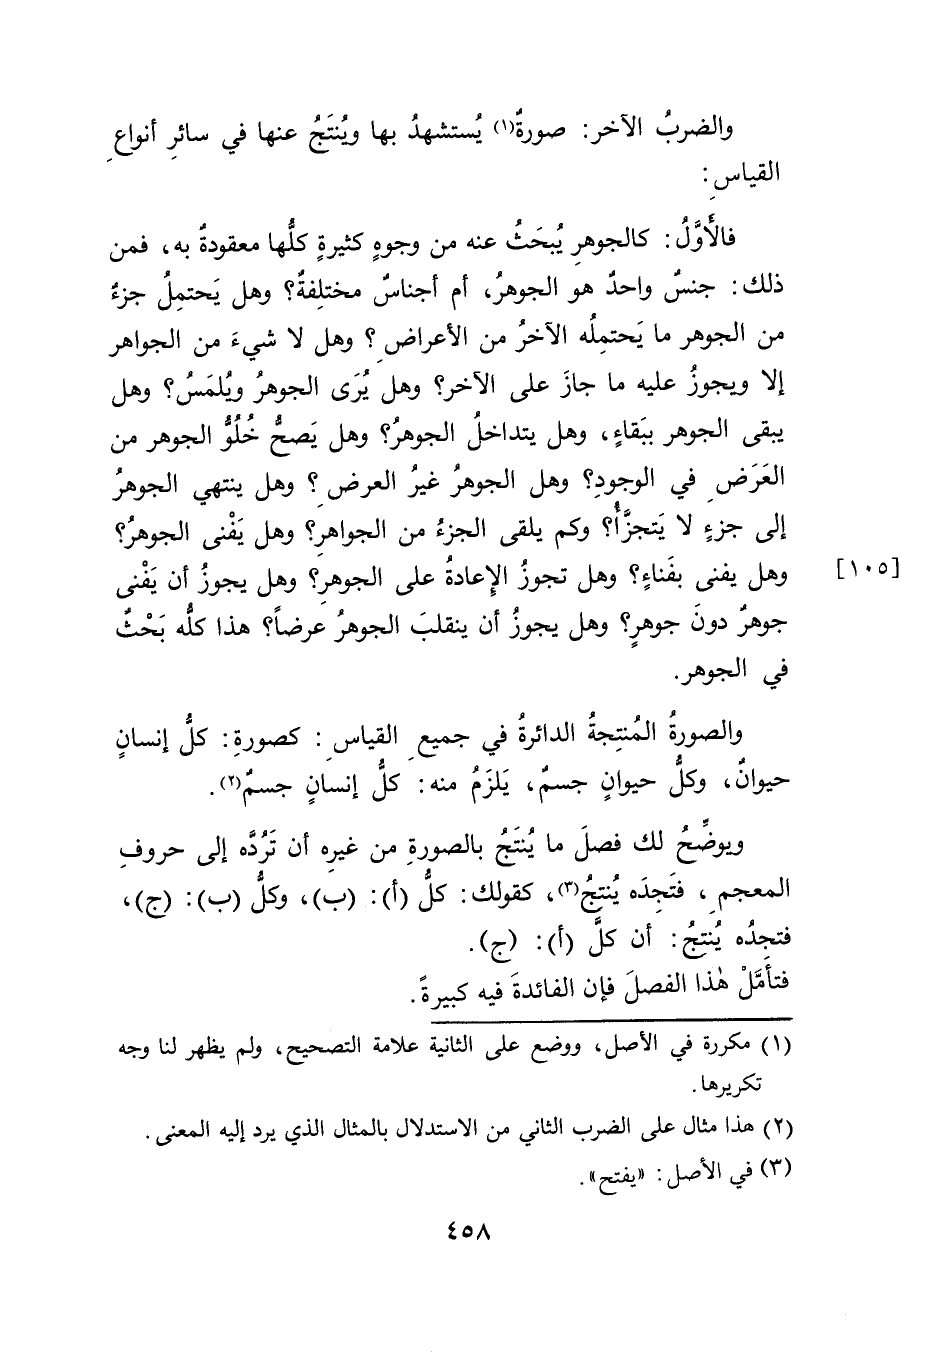 والضربُ الآخر: صورةٌ(١) يُستشهدُ بها ويُنتَجُ عنها في سائرِ أنواعِ
القياسِ:
فالأَوَّلُ: كالجوهرِ يُبحَثُ عنه من وجوهٍ كثيرةٍ كلُّها معقودةٌ به، فمن
ذلك: جنسٌ واحدٌ هو الجوهرُ، أم أجناسٌ مختلِفةٌ؟ وهل يَحتمِلُ جزءٌ
من الجوهر ما يَحتمِلُه الآخرُ من الأعراضِ؟ وهل لا شيءَ من الجواهر
إلا ويجوزُ عليه ما جازَ على الآخر؟ وهل يُرَى الجوهرُ ويُلمَسُ؟ وهل
يبقى الجوهر ببَقاءٍ، وهل يتداخلُ الجوهرُ؟ وهل يَصحُّ خُلُوُّ الجوهر من
العَرَضِ في الوجودِ؟ وهل الجوهرُ غيرُ العرضِ؟ وهل ينتهي الجوهرُ
إلى جزءٍ لا يَتجزَّأُ؟ وكم يلقى الجزءُ من الجواهرِ؟ وهل يَفْنى الجوهرُ؟
وهل يفنى بفَناءٍ؟ وهل تجوزُ الإِعادةُ على الجوهرِ؟ وهل يجوزُ أن يَفْنى [١٠٥]
جوهرٌ دونَ جوهرٍ؟ وهل يجوزُ أن ينقلبَ الجوهرُ عرضاً؟ هذا كلُّه بَحْثٌ
في الجوهر.
والصورةُ المُنتِجةُ الدائرةُ في جميعِ القياسِ: كصورةِ: كلُّ إنسانٍ
حيوانٌ، وكلُّ حيوانٍ جسمٌ، يَلزَمُ منه: كلُّ إنسانٍ جسمٌ(٢).
ويوضِّحُ لك فصلَ ما يُنتَجُ بالصورةِ من غيرِه أن تَرُدَّه إلى حروفِ
المعجمِ، فتَجِدَه يُنتِجُ(٣)، كقولك: كلُّ (أ): (ب)، وكلُّ (ب): (ج)،
فتجِدُه يُنتِجُ: أن كلَّ (أ): (ج).
فتأَمَّلْ هٰذا الفصلَ فإن الفائدةَ فيه كبيرةً.
(١) مكررة في الأصل، ووضع على الثانية علامة التصحيح، ولم يظهر لنا وجه
تكريرها.
(٢) هذا مثال على الضرب الثاني من الاستدلال بالمثال الذي يرد إليه المعنى.
(٣) في الأصل: «يفتح».
٤٥٨